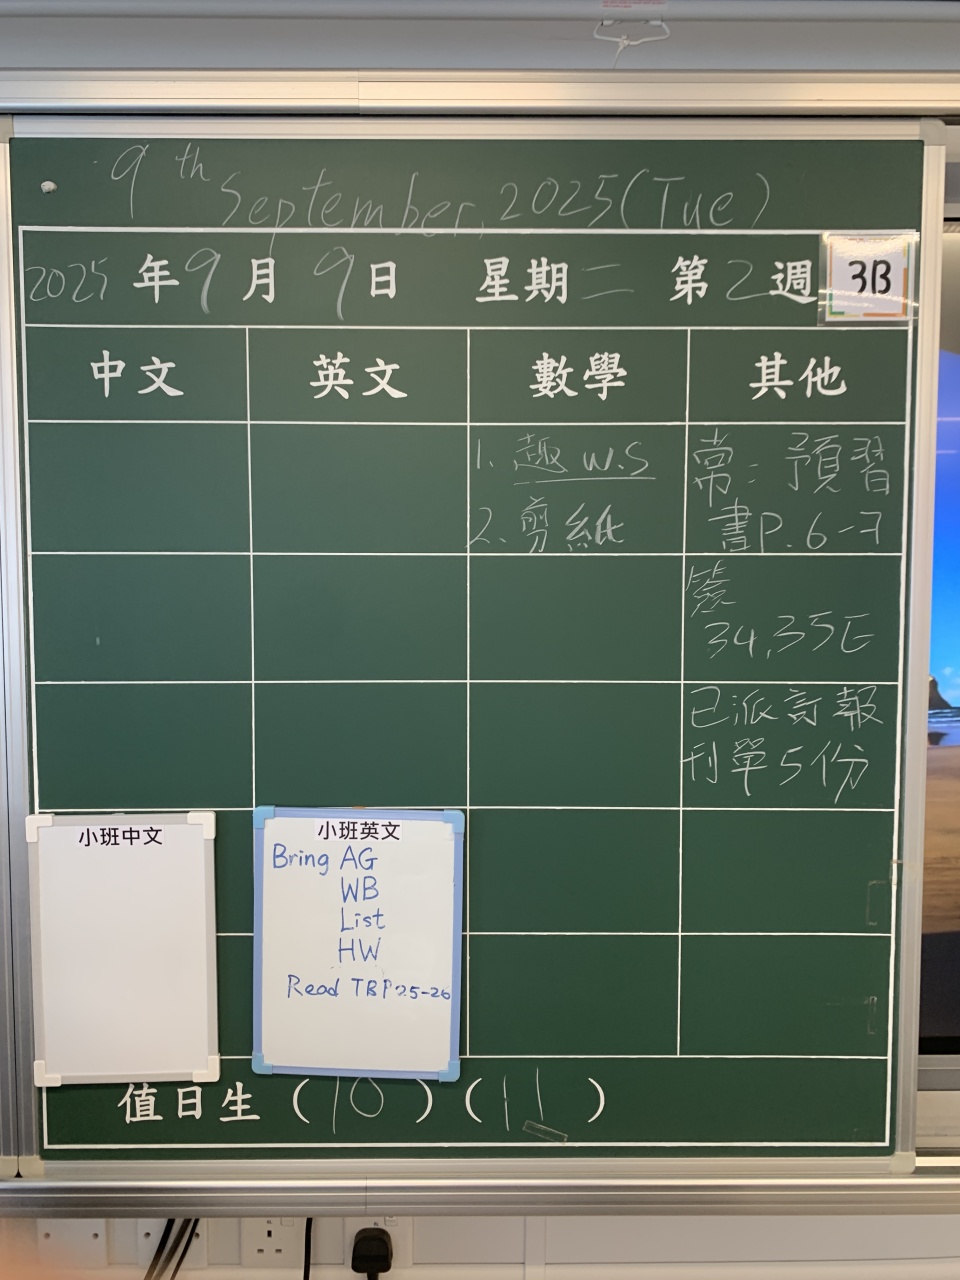 9th September, 2025 (Tue)
2025年9月9日 星期二 第2週 3B
中文 英文 數學 其他
1. 趣 W.S
2. 剪紙
常: 預習
書P. 6-7
簽
34,35E
已派訂報
刊單5份
小班中文
小班英文
Bring AG
WB
List
HW
Read TB P25-26
值日生 (10) (11)